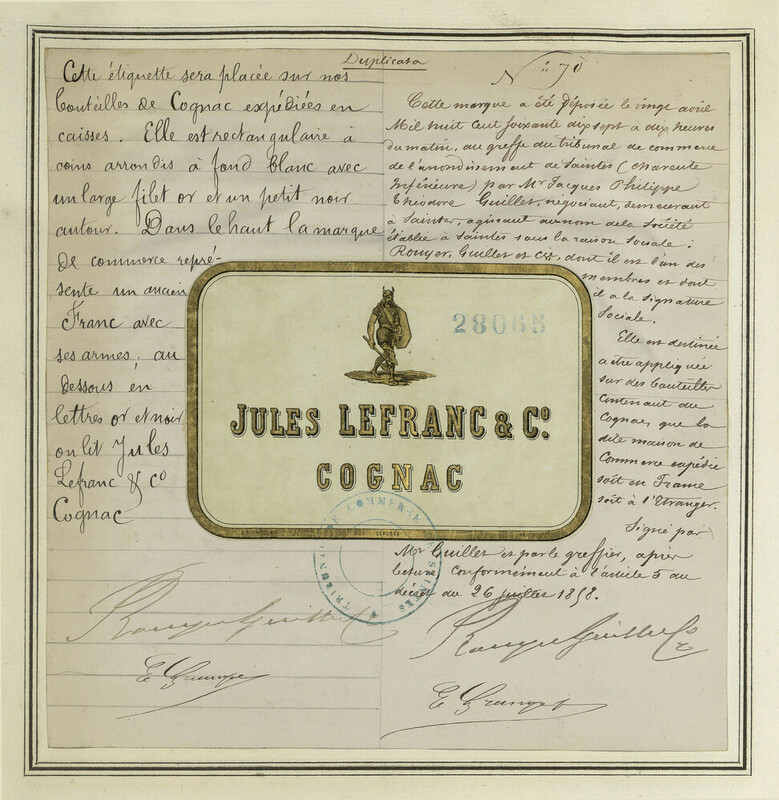 Duplicata
Cette étiquette sera placée sur nos
bouteilles de Cognac expédiées en
caisses. Elle est rectangulaire à
coins arrondis à fond blanc avec
un large filet or et un petit noir
autour. Dans le haut la marque
de commerce repré-
sente un ancien
Franc avec
ses armes; au
dessous en
lettres or et noir
on lit Jules
Lefranc & Co
Cognac
Rouyer Guillet & Co
E. Granger
N:º 70
Cette marque a été déposée le vingt avril
Mil huit cent soixante dix sept à dix heures
du matin, au greffe du tribunal de commerce
de l'arrondissement de Saintes (Charente
Inférieure) par Mr Jacques Philippe
Théodore Guillet, négociant, demeurant
à Saintes, agissant au nom de la Société
établie à Saintes sous la raison sociale:
Rouyer, Guillet et Cie, dont il est l'un des
membres et dont
il a la signature
Sociale.
Elle est destinée
a être appliquée
sur des bouteilles
contenant du
Cognac, que la
dite maison de
Commerce expédie
soit en France
soit à l'Etranger.
Signé par
Mr Guillet et par le greffier, après
lecture conformément à l'article 5 du
décret du 26 juillet 1858.
Rouyer Guillet & Co
E. Granger
28065
JULES LEFRANC & Co.
COGNAC
DÉPOSÉE
TRIBUNAL DE COMMERCE DE SAINTES